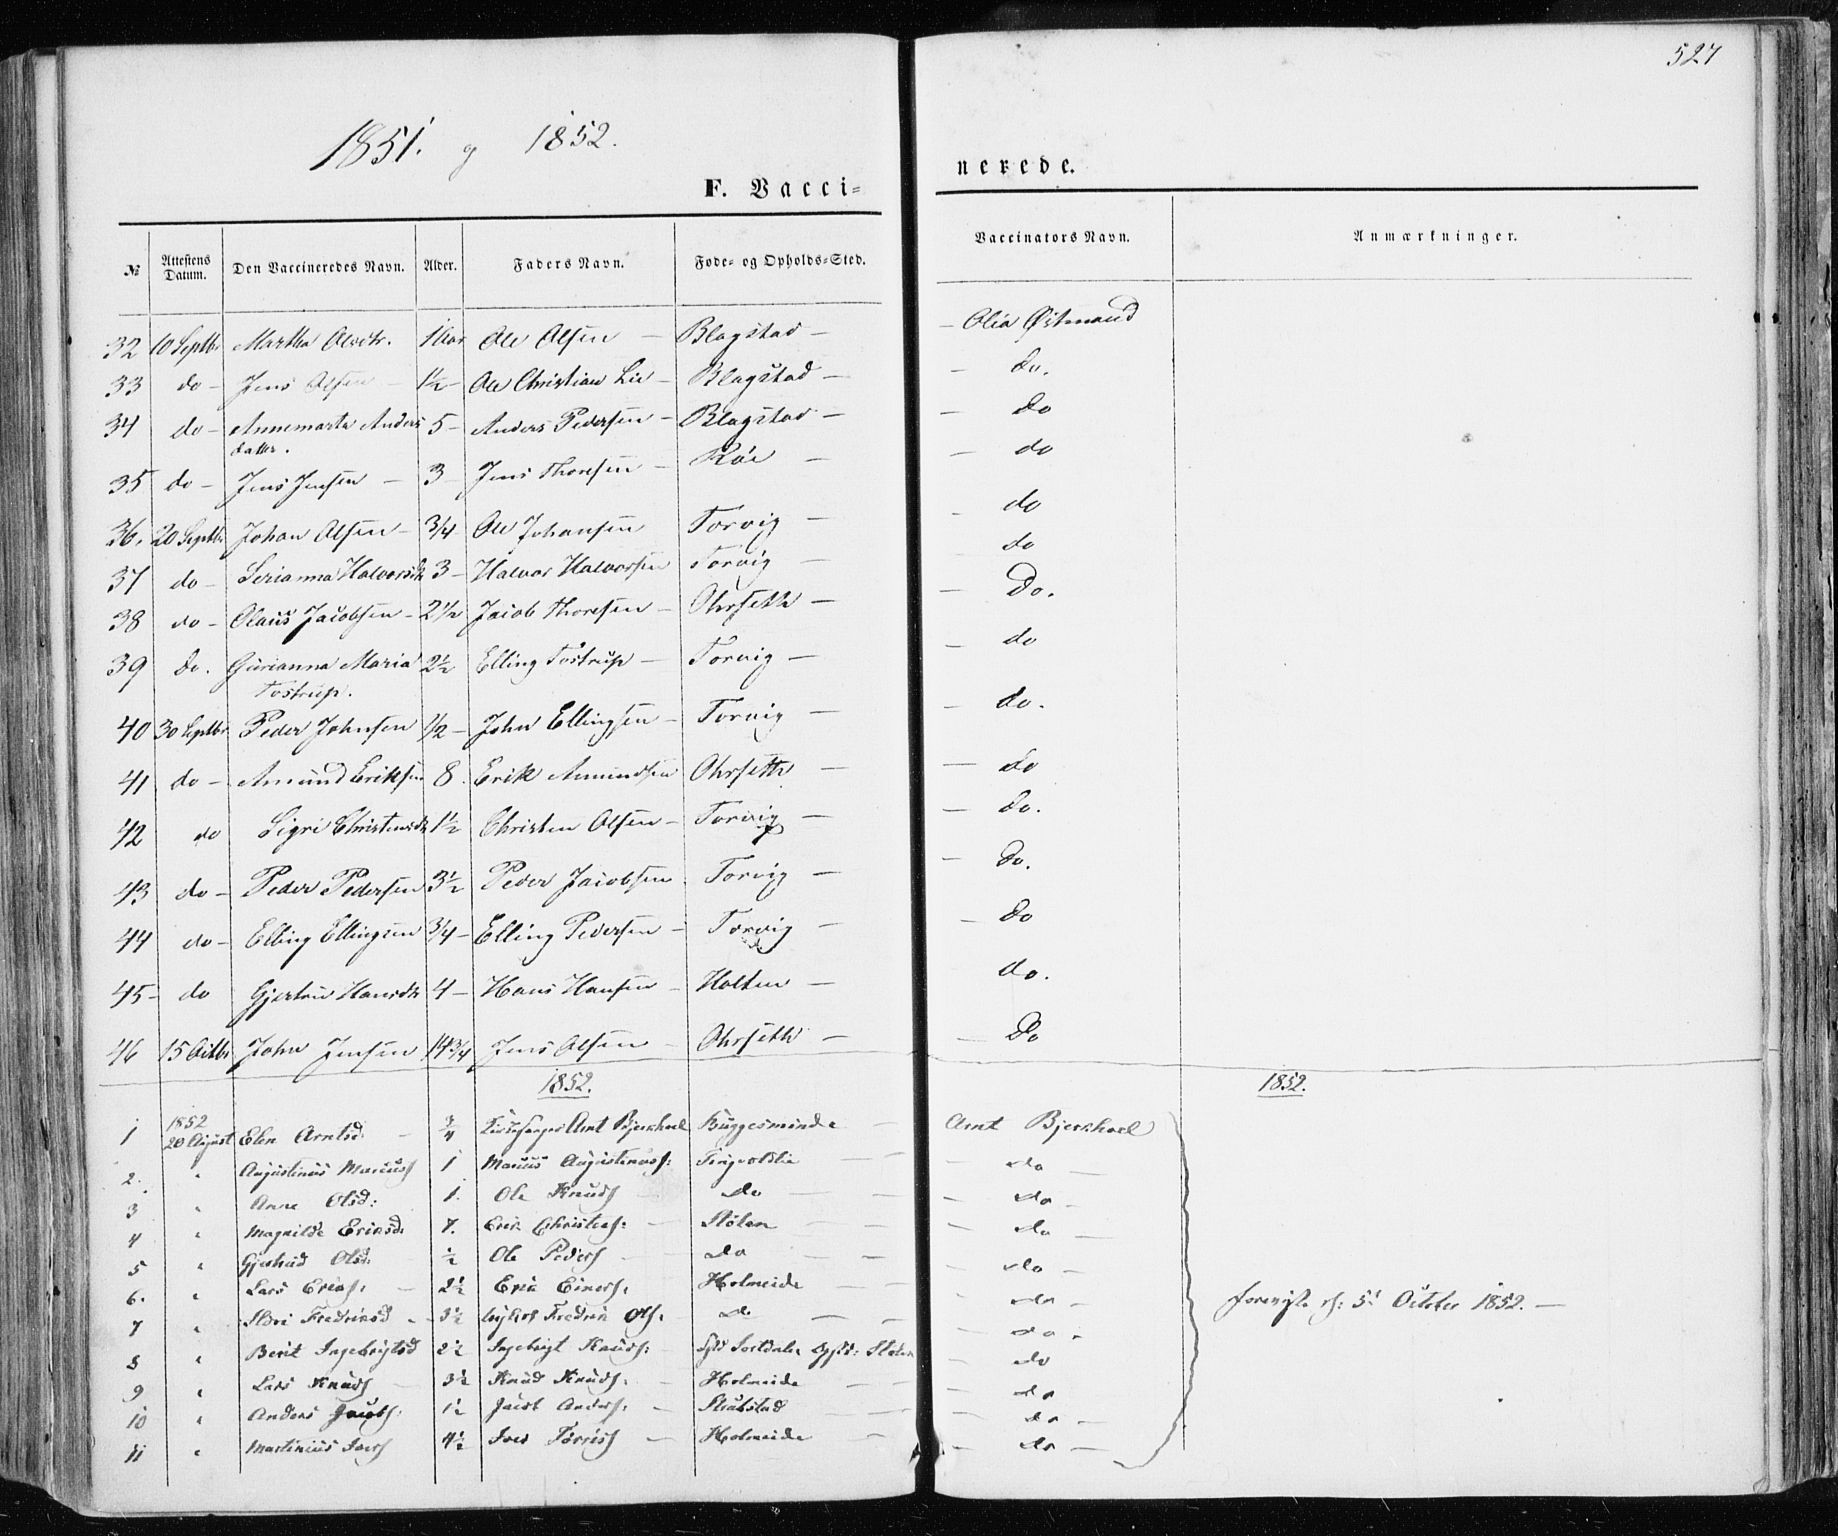 527
1851. og 1852.
F. Vacci=
nerede.
№ Attestens Datum. Den Vaccineredes Navn. Alder. Faders Navn. Føde- og Opholds-Sted. Vaccinators Navn. Anmærkninger.
32 10 Septbr Martha Olsdtr. 1 Aar Ole Olsen — Blagstad — — Olia Østmand
33 do - Jens Olsen - 1½ - Ole Christian Lie - Blagstad — — do.
34 do - Annemarta Anders 5 - Anders Pedersen - Blagstad — — do
datter.
35 do - Jens Jensen - 3 Jens Thoresen - Röe — — do
36. 20 Septbr Johan Olsen - 3/4 Ole Johansen Torvig — — do
37 do - Serianna Halvorsdtr 3 - Halvor Halvorsen Torvig — — do
38 do - Olaus Jacobsen - 2½ Jacob Thoresen - Ohrseth — — Do.
39 do. Gurianna Maria 2½ Elling Tostrup — Torvig — — do
Tostrup.
40 30 Septbr Peder Johnsen 1/2 - John Ellingsen - Torvig — — do.
41 do - Amund Eriksen 8. Erik Amundsen Ohrseth — — do
42 do Sigri Christensdtr 1½ Christen Olsen - Torvig — — do.
43 do - Peder Pedersen 3½ Peder Jacobsen Torvig — — do.
44 do - Elling Ellingsen 3/4 - Elling Pedersen - Torvig — — do
45 - do Gjertru Hansdtr 4 - Hans Hansen - Holten — — do.
46 15 Octbr John Jensen 14 3/4 Jens Olsen - Ohrseth — — Do
1852. 1852.
1852
1 20 August Elen Arntsd: - 3/4 Kirkesanger Arnt Bjerkhoel Buggesminde — Arnt Bjerkhoel
2. " Augustinus Mariuss 1 Marius Augustinuss: Tingvoldlie — — do —
3 " Anne Olsd: 1. Ole Knuds do — — do -
4 " Magnilde Eriksd: 7. Erik Christens: - Stölen — — do —
5 " Gjertrud Olsd: ½ Ole Peders do — — do —
6. " Lars Eriks: - 2½ Erik Einers: Holmeide — — do - forevist d: 5t October 1852. —
7 " Fredriksd - 3½ Fredrik Ols: do — — do -
8 " Berit Ingebrigtsd 2½ Ingebrigt Knuds: - — do
9 " Lars Knuds 3½ Knud Knuds: Holmeide — — do
10 " Anders Jacobs: 1½ Jacob Anders: - — do -
11 " Martinius Ivers 4½ Iver — Holmeide — — do —